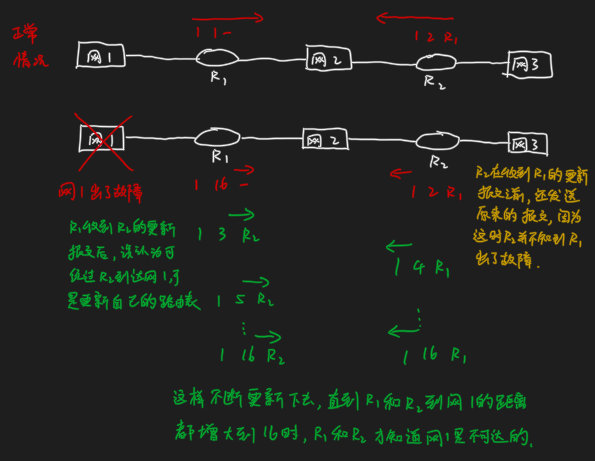 正常
情况
1 1 -
1 2 R₁
网1
R₁
网2
R₂
网3
网1
R₁
网2
R₂
网3
网1出了故障
1 16 -
1 2 R₁
R₂在收到R₁的更新
报文之前，还发送
原来的报文，因为
这时R₂并不知到R₁
出了故障.
R₁收到R₂的更新
报文后，误认为可
经过R₂到达网1,于
是更新自己的路由表
1 3 R₂
1 4 R₁
1 5 R₂
⋮
⋮
1 16 R₂
1 16 R₁
这样不断更新下去，直到R₁和R₂到网1的距离
都增大到16时，R₁和R₂才知道网1是不可达的.